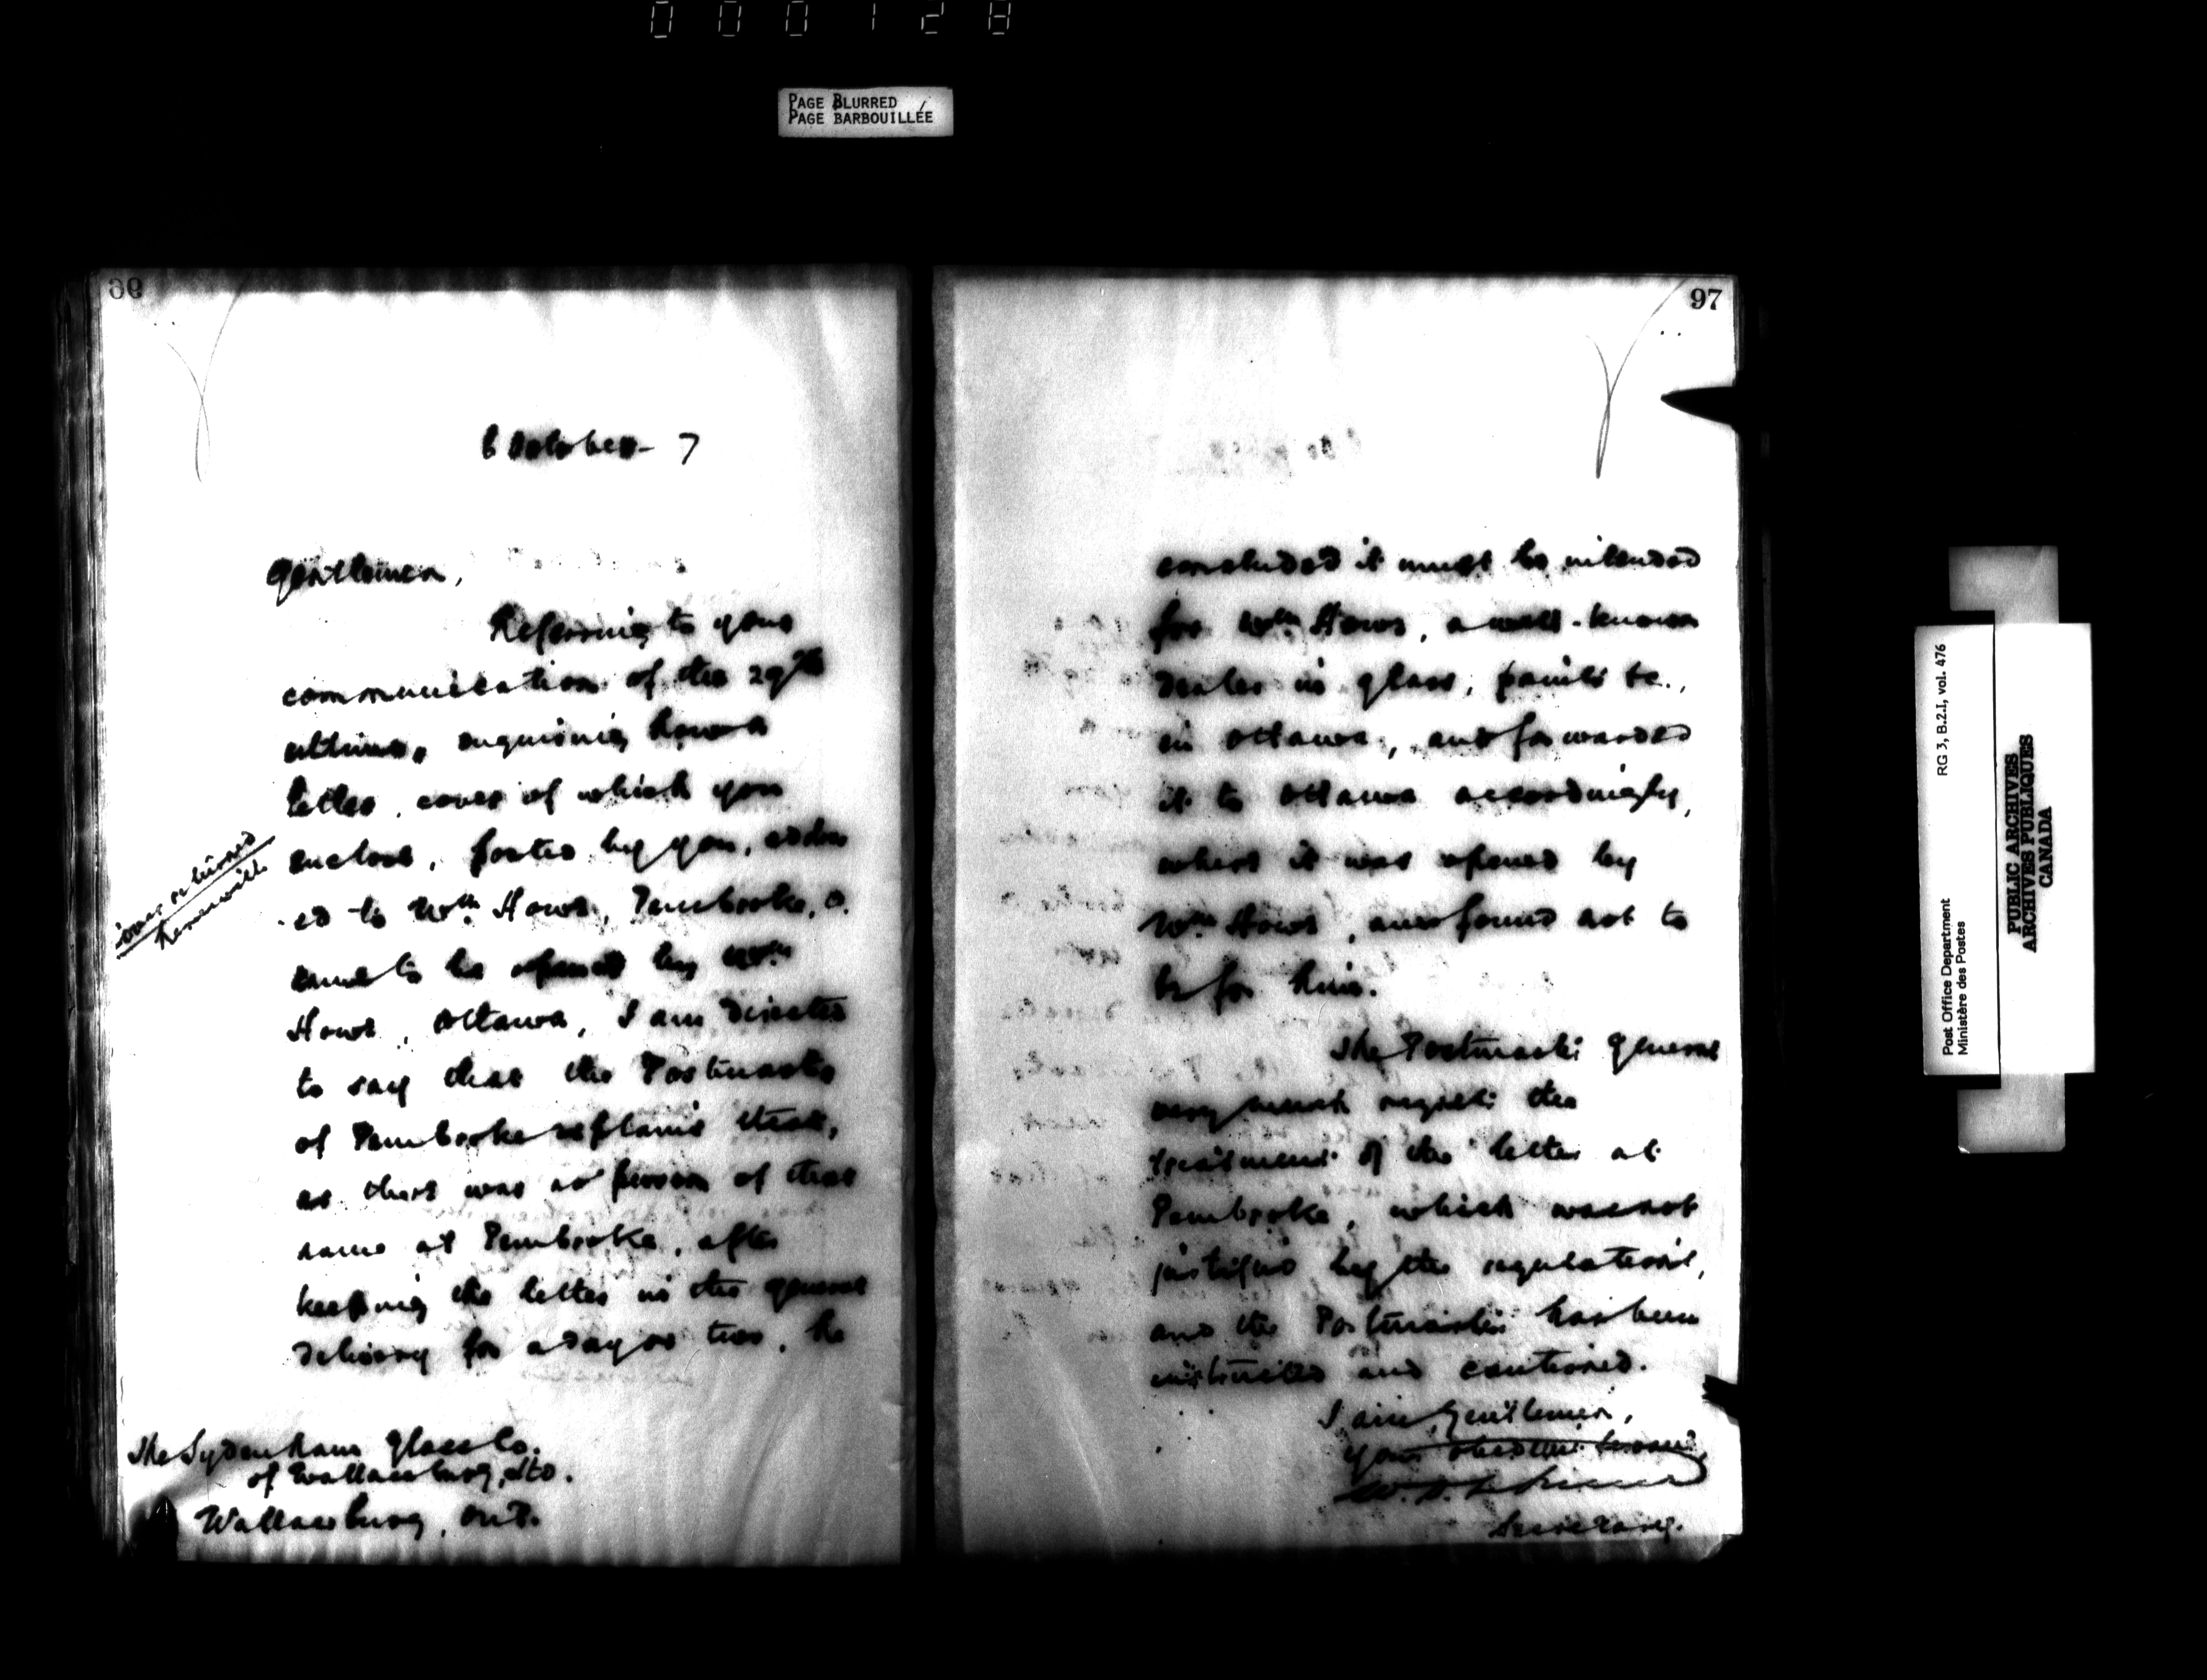 000128
PAGE BLURRED
PAGE BARBOUILLÉE
96
6 October 7
Gentlemen,
Referring to your
communication of the 29th
ultimo, enquiring how a
letter, cover of which you
enclose, posted by you, address
ed to Wm. Howe, Pembroke, O.
came to be opened by Wm.
Howe, Ottawa, I am directed
to say that the Postmaster
of Pembroke explains that,
as there was no person of that
name at Pembroke, after
keeping the letter in the general
delivery for a day or two, he
Cover returned
herewith
The Sydenham Glass Co.
of Wallaceburg, Ltd.
Wallaceburg, Ont.
97
concluded it must be intended
for Wm. Howe, a well-known
dealer in glass, paints &c.,
in Ottawa, and forwarded
it to Ottawa accordingly,
where it was opened by
Wm. Howe, and found not to
be for him.
The Postmaster General
very much regrets the
treatment of the letter at
Pembroke, which was not
justified by the regulations,
and the Postmaster has been
instructed and cautioned.
I am, Gentlemen,
Your obedient servant
Secretary.
RG 3, B.2.I, vol. 476
Post Office Department
Ministère des Postes
PUBLIC ARCHIVES
ARCHIVES PUBLIQUES
CANADA